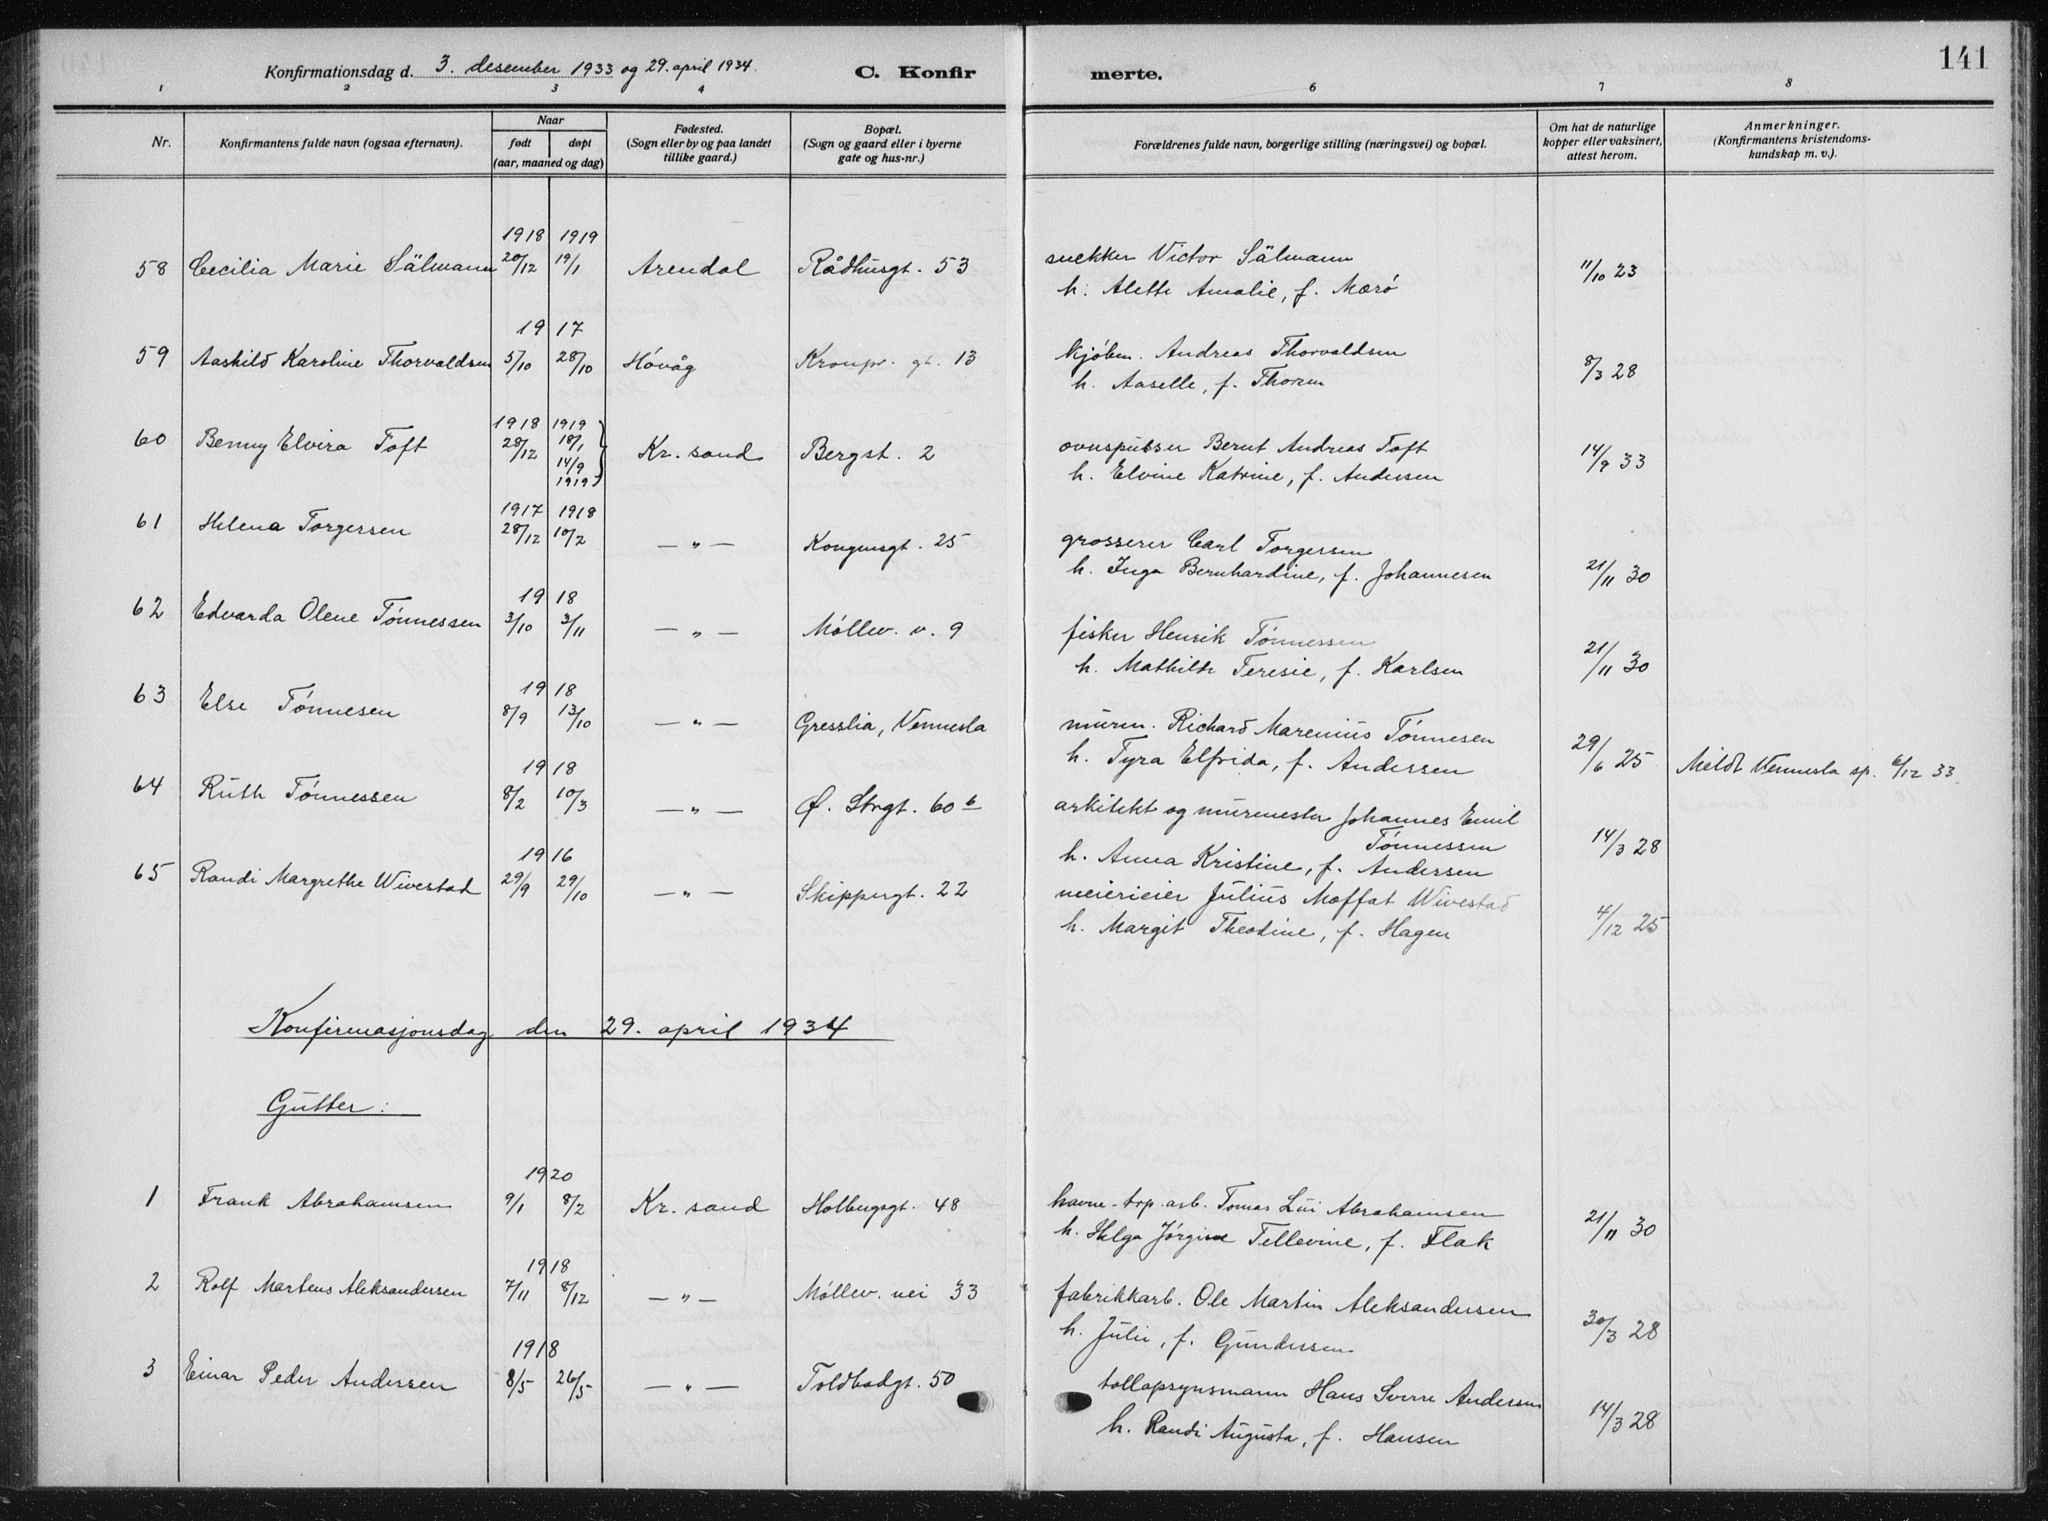 141
Konfirmationsdag d. 3. desember 1933 og 29. april 1934. C. Konfir merte.
1 2 3 4 6 7 8
Nr.
Konfirmantens fulde navn (ogsaa efternavn).
Naar
født døpt
(aar, maaned og dag)
Fødested.
(Sogn eller by og paa landet
tillike gaard.)
Bopæl.
(Sogn og gaard eller i byerne
gate og hus-nr.)
Forældrenes fulde navn, borgerlige stilling (næringsvei) og bopæl.
Om hat de naturlige
kopper eller vaksinert,
attest herom.
Anmerkninger.
(Konfirmantens kristendoms-
kundskap m. v.).
1918 1919
58 Cecilia Marie Sälmann 20/12 19/1 Arendal Rådhusgt. 53 snekker Victor Sälmann 11/10 23
h. Alette Amalie, f. Mærø
19 17
59 Aaskild Karoline Thorvaldsen 5/10 28/10 Høvåg Kronpr. gt. 13 kjøbm. Andreas Thorvaldsen 8/3 28
h. Aaselle, f. Thorsen
1918 1919
60 Benny Elvira Toft 28/12 18/1 Kr. sand Bergst. 2 ovnspusser Bernt Andreas Toft 14/9 33
14/9 h. Elvine Katrine, f. Andersen
1919
1917 1918
61 Helena Torgersen 28/12 10/2 — " — Kongensgt. 25 grosserer Carl Torgersen
h. Inga Bernhardine, f. Johannesen 21/11 30
19 18
62 Edvarda Olene Tønnessen 3/10 3/11 — " — Møllev. v. 9 fisker Henrik Tønnessen
h. Mathilde Teresie, f. Karlsen 21/11 30
19 18
63 Else Tønnesen 8/9 13/10 — " — Gresslia, Vennesla murm. Richard Marenius Tønnesen
h. Tyra Elfrida, f. Andersen 29/6 25 Meldt Vennesla sp. 6/12 33
19 18
64 Ruth Tønnessen 8/2 10/3 — " — Ø. Strgt. 60 b arkitekt og murmester Johannes Emil
Tønnessen 14/3 28
h. Anna Kristine, f. Andersen
19 16
65 Randi Margrethe Wivestad 29/9 29/10 — " — Skippergt. 22 meierieier Julius Moffat Wivestad
h. Margit Theodine, f. Hagen 4/12 25
Konfirmasjonsdag den 29. april 1934
Gutter:
19 20
1 Frank Abrahamsen 9/1 8/2 Kr. sand Holbergsgt. 48 havne-trp. arb. Tomas Lui Abrahamsen
h. Helga Jørgine Tellevine, f. Flak 21/11 30
1918
2 Rolf Martens Aleksandersen 7/11 8/12 — " — Møllev. vei 33 fabrikkarb. Ole Martin Aleksandersen
h. Julie, f. Gundersen 30/3 28
1918
3 Einar Peder Andersen 8/5 26/5 — " — Toldbodgt. 50 tollopsynsmann Hans Sverre Andersen
h. Randi Augusta, f. Hansen 14/3 28